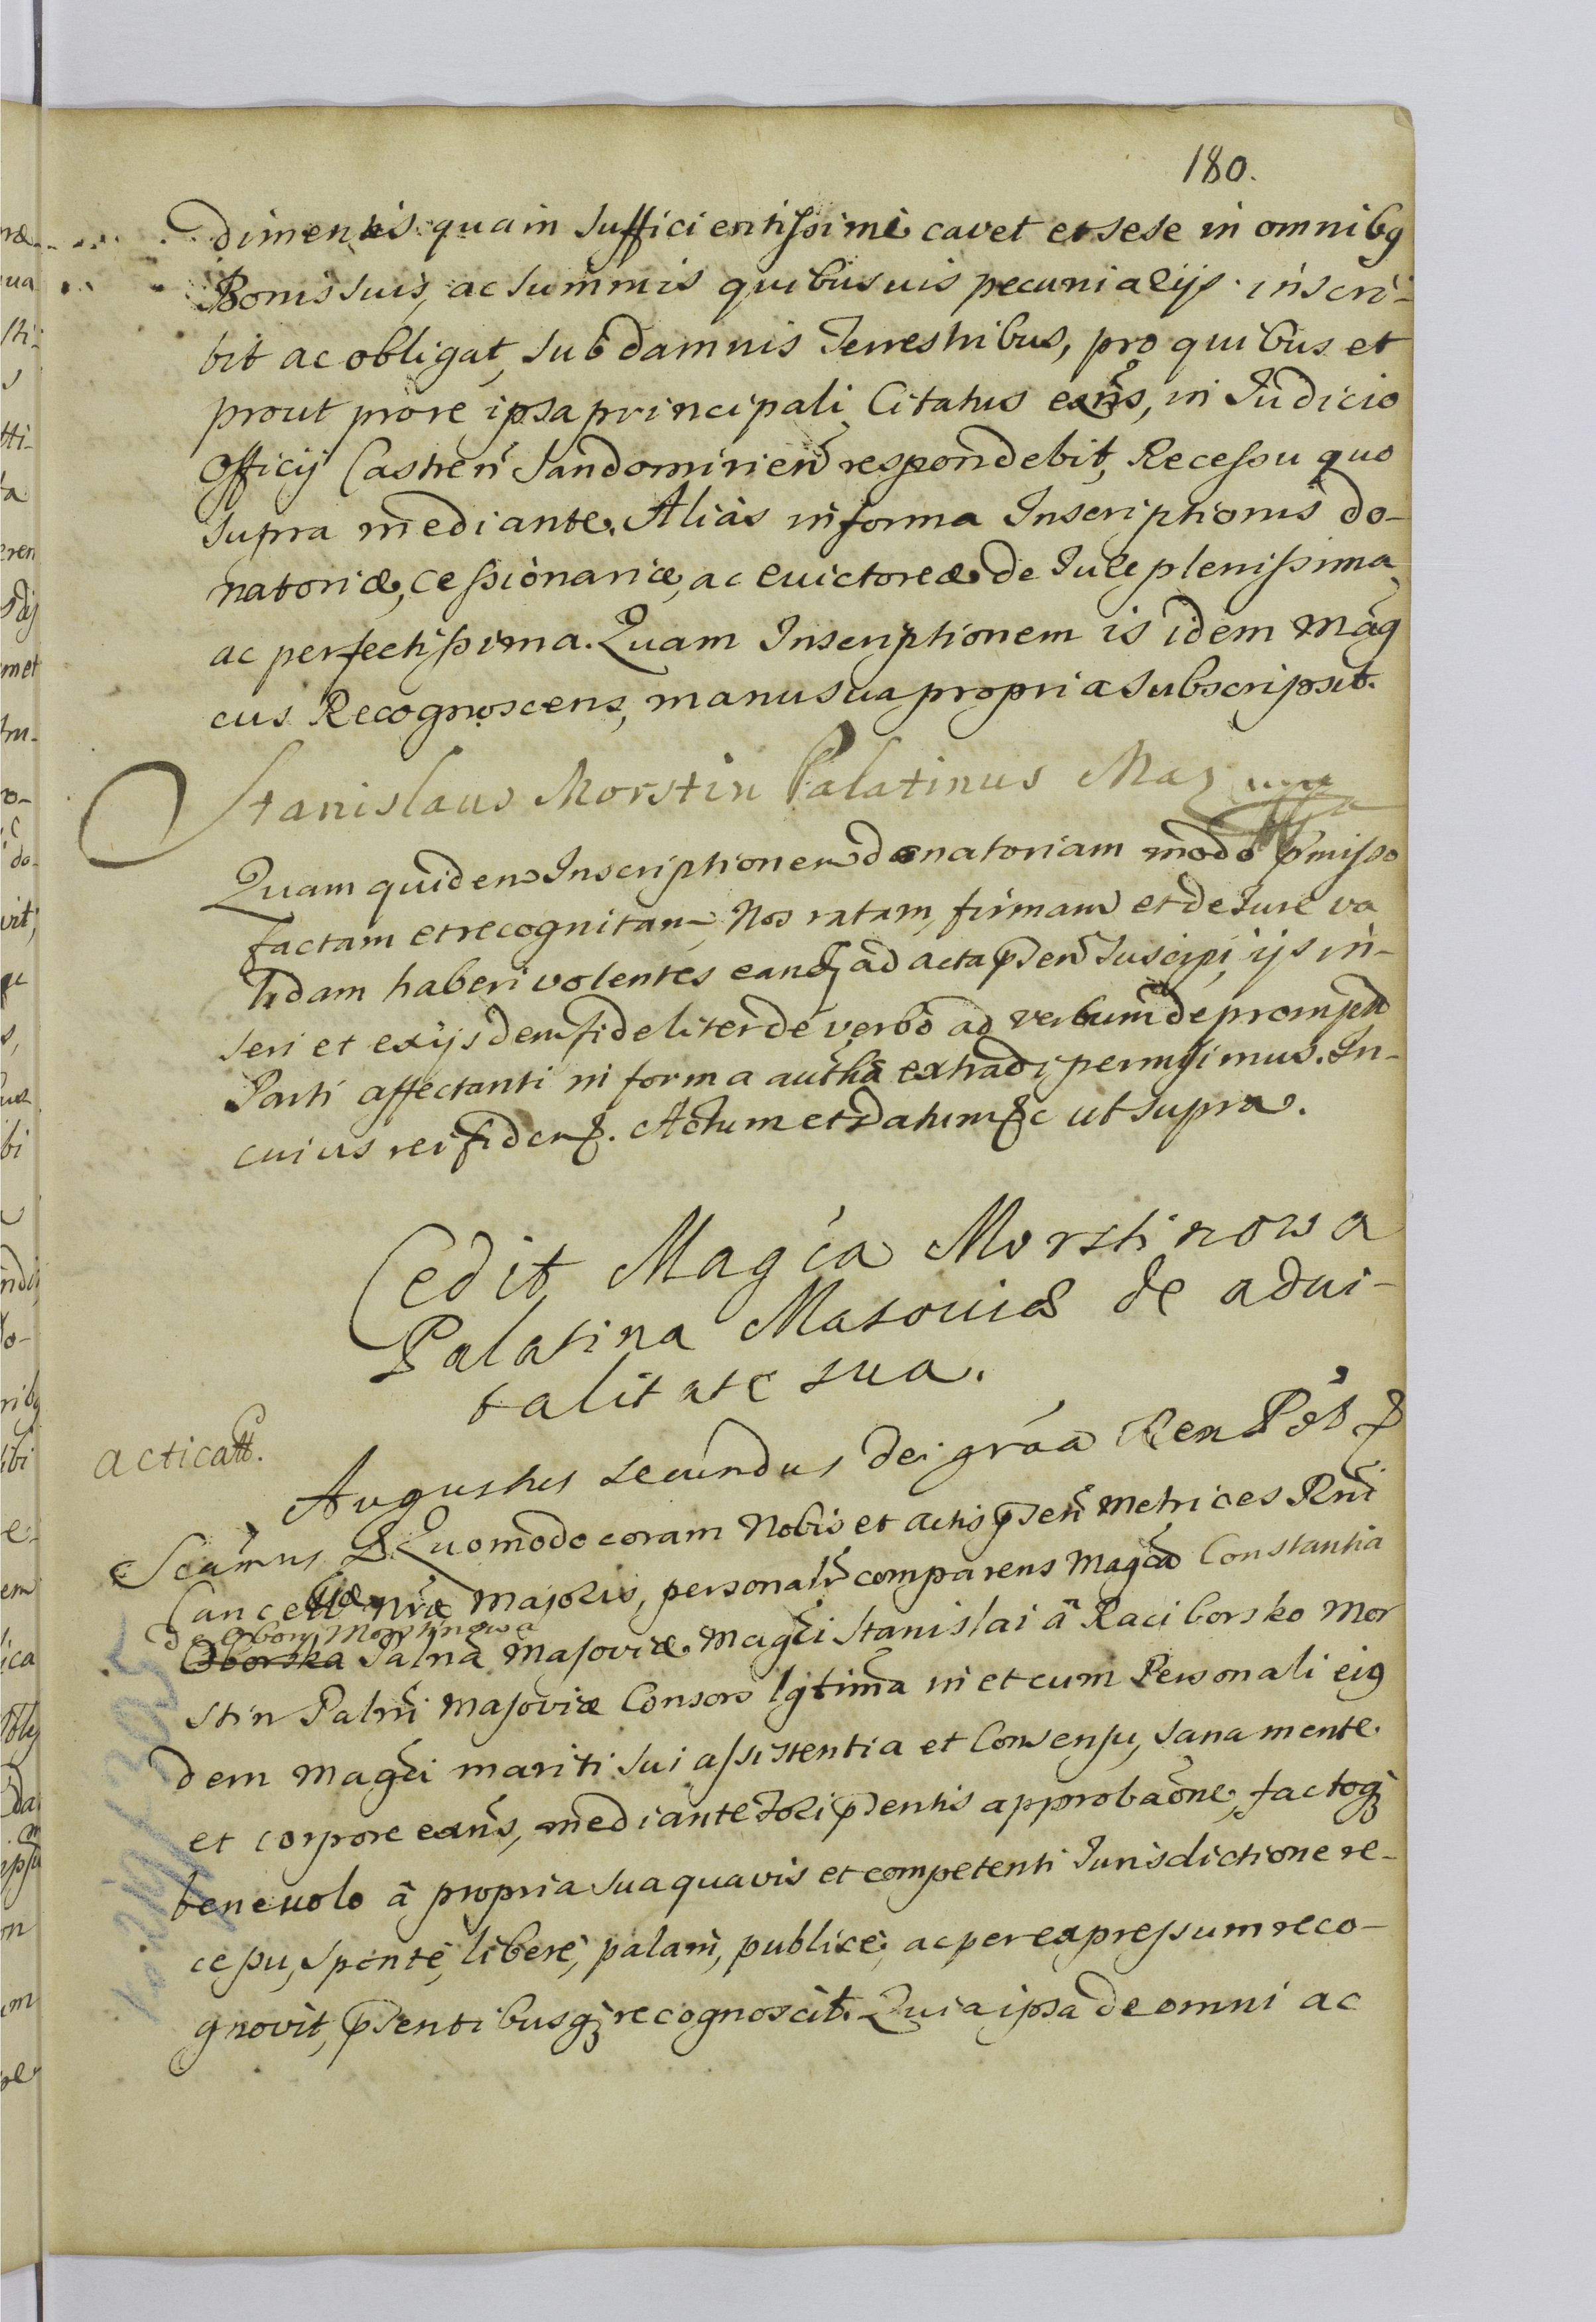 180.
dimentis quam sufficientissime cavet et sese in omnibq
Bonis suis, ac summis quibusuis pecunialijs inscri-
bit ac obligat, sub damnis Terrestribus, pro quibus et
prout pro re ipsa principali Citatus exñs, in Judicio
Officij Castreñ Sandomirieñ respondebit, Recessu quo
supra mediante. Aliàs in forma Inscriptionis do-
natoriæ, cessionariæ, ac evictoreæ de Jure plenissima
ac perfectissima. Quam Inscriptionem is idem Mag
cus Recognoscens, manu sua propria subscripsit.
Stanislaus Morstin Palatinus Maz
Quam quidem Inscriptionem donatoriam modo p̃misso
factam et recognitam, Nos ratam, firmam et de Jure va
lidam haberi volentes eandꝫ ad acta p̃señ suscipi, ijs in-
seri et exijsdem fideliter de verbo ad verbum depromptã
Parti affectanti in forma authã extradi permisimus. In-
cuius rei fidem &. Actum et Datum &c ut supra.
Cedit Magca Morstinowa
Palatina Masoviæ de advi-
talitate sua.
acticatt.
Augustus secundus Dei grãa Rex Pol &
Scãmus & Quomodo coram Nobis et actis p̃señ Metrices Rñi
Cancellæ Nræ Majoris, personalr̃ comparens Magcã Constantia
de Obory Morstinowa
Oborska Palñã Masoviæ Magci Stanislai â Raciborsko Mor
stin Palñi Masoviæ Consors lgtima in et cum Personali eiq
dem Magci mariti sui assistentia et Consensu, sana mente
et corpore exñs, mediante Fori p̃sentis approbaõne, factoqꝫ
benevolo â propria sua quavis et competenti Jurisdictione re-
cessu, sponte, liberè, palam, publicè, ac per expressum reco-
gnovit, p̃sentibusqꝫ recognoscit. Quia ipsa de omni ac